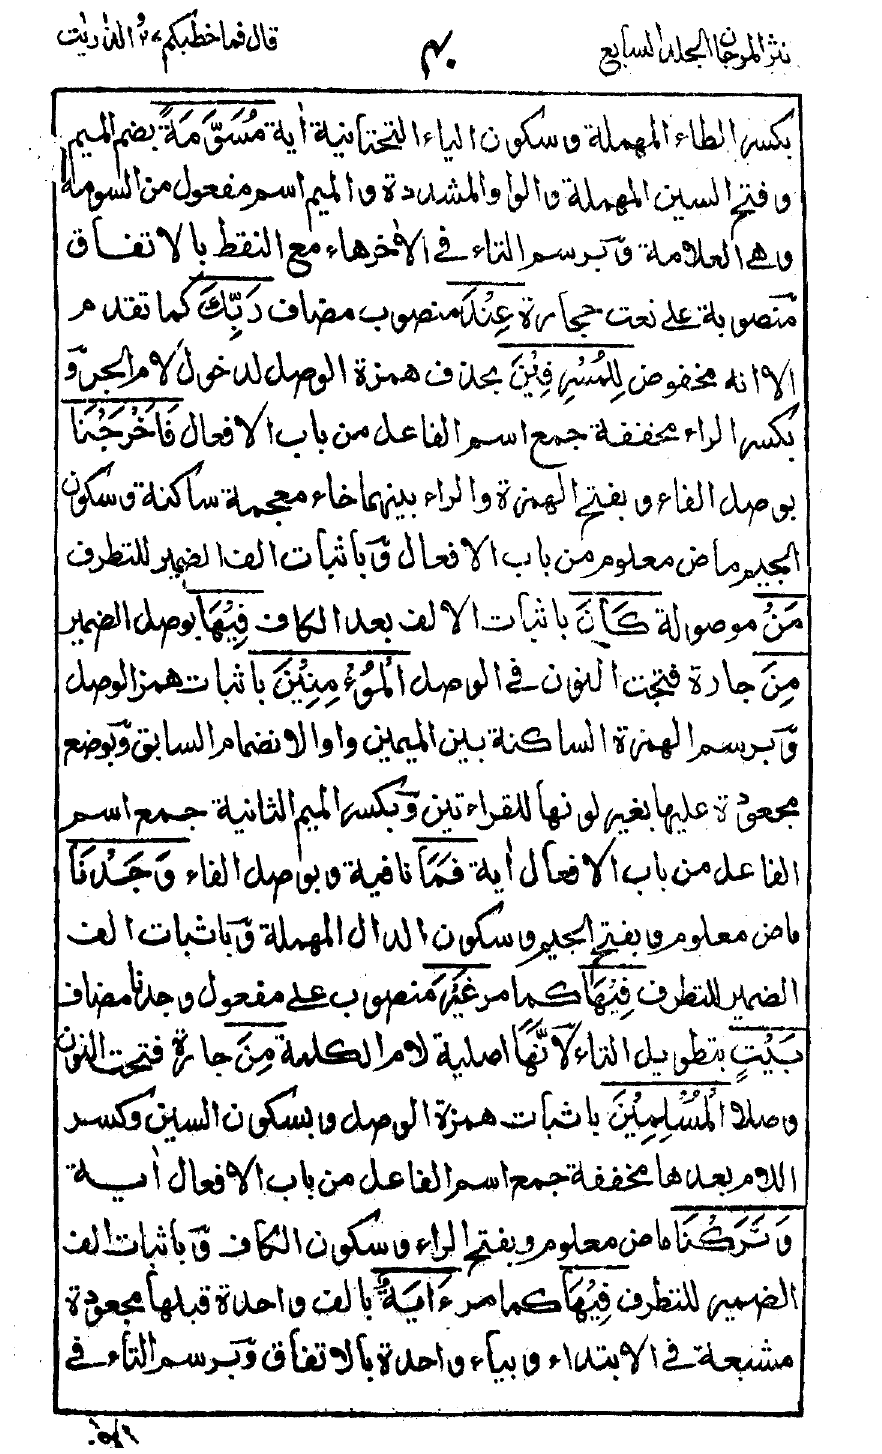 نثر المرجان الجلد السابع
۴۰
قال فما خطبكم ۲۷ والذّٰريٰت
بكسر الطاء المهملة وسكون الياء التحتانية أية مُسَوَّمَةً بضم الميم
وفتح السين المهملة والواو المشددة والميم اسم مفعول من السومة
وهي العلامة وّبرسم التاء في الاٰخرهاء مع النقط بالاتفاق
منصوبة على نعت حجارة عِنْدَ منصوب مضاف رَبِّكَ كما تقدم
الا انه مخفوض لِلْمُسْرِفِيْنَ بحذف همزة الوصل لدخول لام الجر وّ
بكسر الراء مخففة جمع اسم الفاعل من باب الافعال فَاَخْرَجْنَا
بوصل الفاء وبفتح الهمزة والراء بينهما خاء معجمة ساكنة وسكون
الجيم ماض معلوم من باب الافعال وّباثبات الف الضمير للتطرف
مَنْ موصولة كَانَ باثبات الالف بعد الكاف فِيْهَا بوصل الضمير
مِنَ جارة فتحت النون في الوصل الْمُوْءمِنِيْنَ باثبات همز الوصل
وّبرسم الهمزة الساكنة بين الميمين واوا لانضمام السابق وّبوضع
مجعودة عليها بغير لونها للقراءتين وّبكسر الميم الثانية جمع اسم
الفاعل من باب الافعال أية فَمَا نافية وبوصل الفاء وَجَدْنَا
ماض معلوم وبفتح الجيم وسكون الدال المهملة وّباثبات الف
الضمير للتطرف فِيْهَا كما مر غَيْرَ منصوب على مفعول وجدنا مضاف
بَيْتٍ بتطويل التاء لانَّهَا اصلية لام الكلمة مِنَ جارة فتحت النون
وصلا الْمُسْلِمِيْنَ باثبات همزة الوصل وبسكون السين وكسر
اللام بعدها مخففة جمع اسم الفاعل من باب الافعال أية
وَتَرَكْنَا ماض معلوم وبفتح الراء وسكون الكاف وّباثبات الف
الضمير للتطرف فِيْهَا كما مر ءَايَةً بالف واحدة قبلها مجعودة
مشبعة في الابتداء وبياء واحدة بالاتفاق وّبرسم التاء في